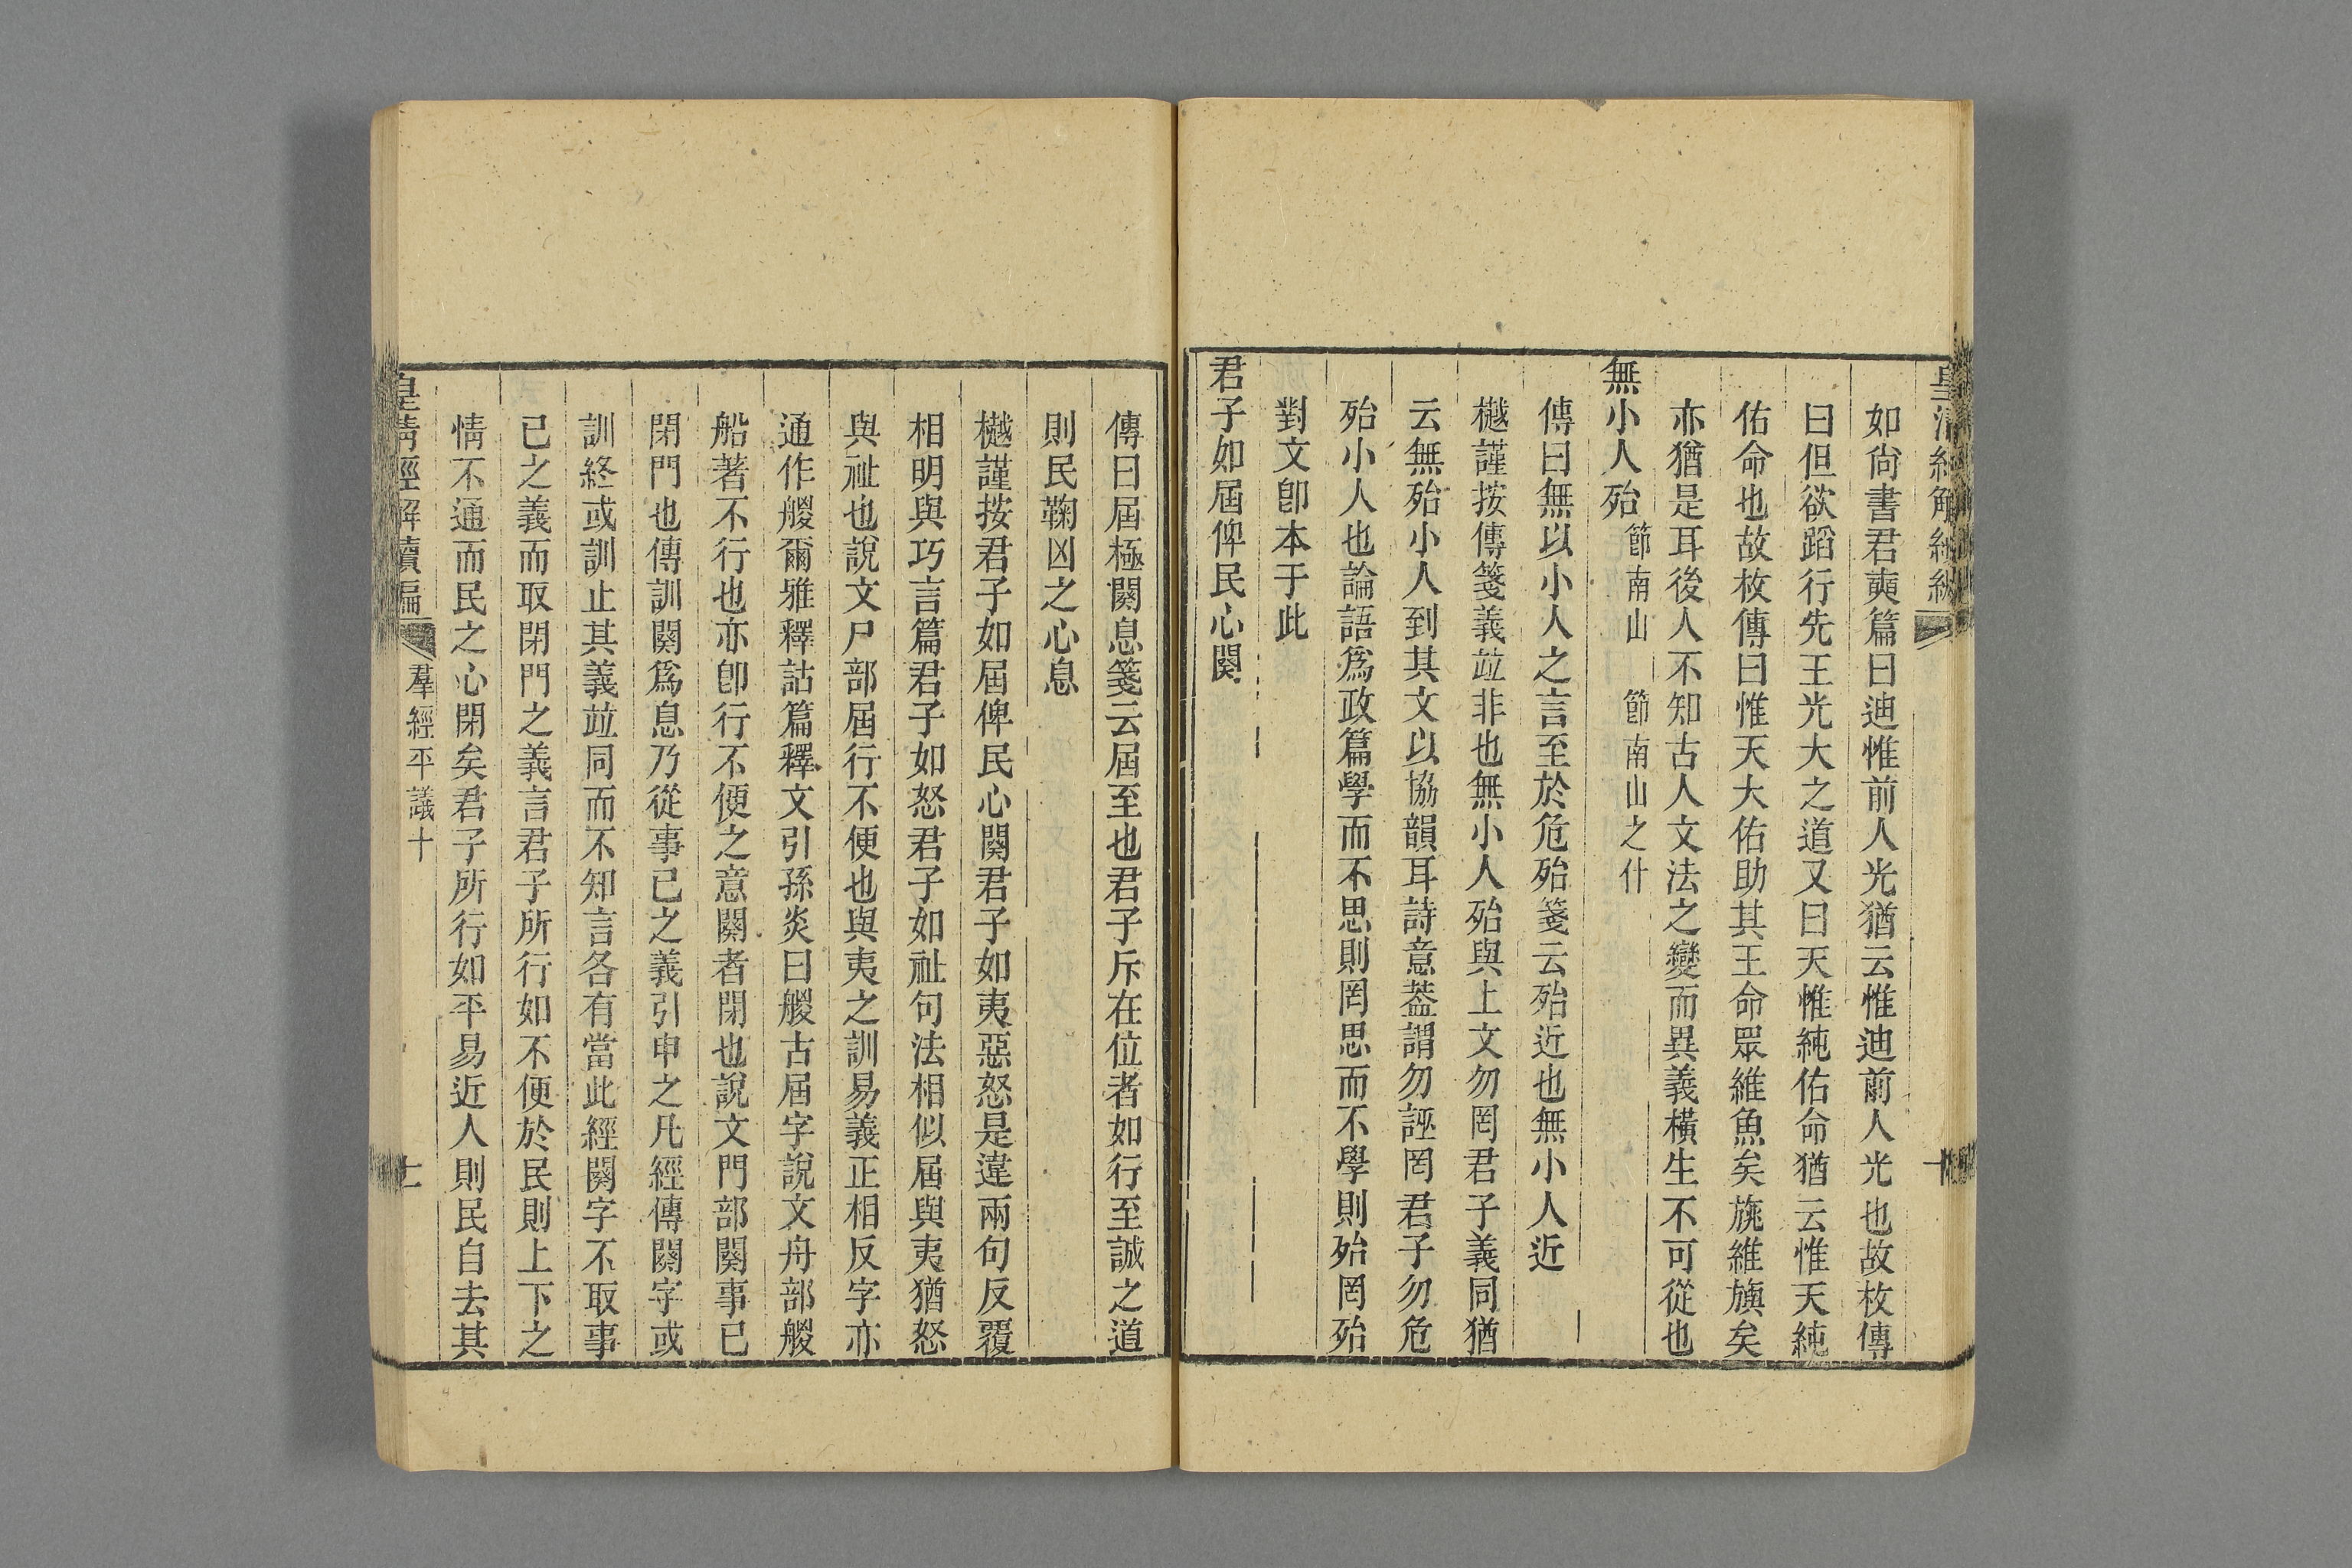 如尙書君奭篇曰迪惟前人光猶云惟迪前人光也故枚傳
曰但欲蹈行先王光大之道又曰天惟純佑命猶云惟天純
佑命也故枚傳曰惟天大佑助其王命眾維魚矣旐維旟矣
亦猶是耳後人不知古人文法之變而異義橫生不可從也
無小人殆 節南山 節南山之什
傳曰無以小人之言至於危殆箋云殆近也無小人近
樾謹按傳箋義竝非也無小人殆與上文勿罔君子義同猶
云無殆小人到其文以協韻耳詩意葢謂勿誣罔君子勿危
殆小人也論語爲政篇學而不思則罔思而不學則殆罔殆
對文卽本于此
君子如屆俾民心闋
傳曰屆極闋息箋云屆至也君子斥在位者如行至誠之道
則民鞠凶之心息
樾謹按君子如屆俾民心闋君子如夷惡怒是違兩句反覆
相明與巧言篇君子如怒君子如祉句法相似屆與夷猶怒
與祉也說文尸部屆行不便也與夷之訓易義正相反字亦
通作艐爾雅釋詁篇釋文引孫炎曰艐古屆字說文舟部艐
船著不行也亦卽行不便之意闋者閉也說文門部闋事已
閉門也傳訓闋爲息乃從事已之義引申之凡經傳闋字或
訓終或訓止其義竝同而不知言各有當此經闋字不取事
已之義而取閉門之義言君子所行如不便於民則上下之
情不通而民之心閉矣君子所行如平易近人則民自去其
皇清經解續編 羣經平議十